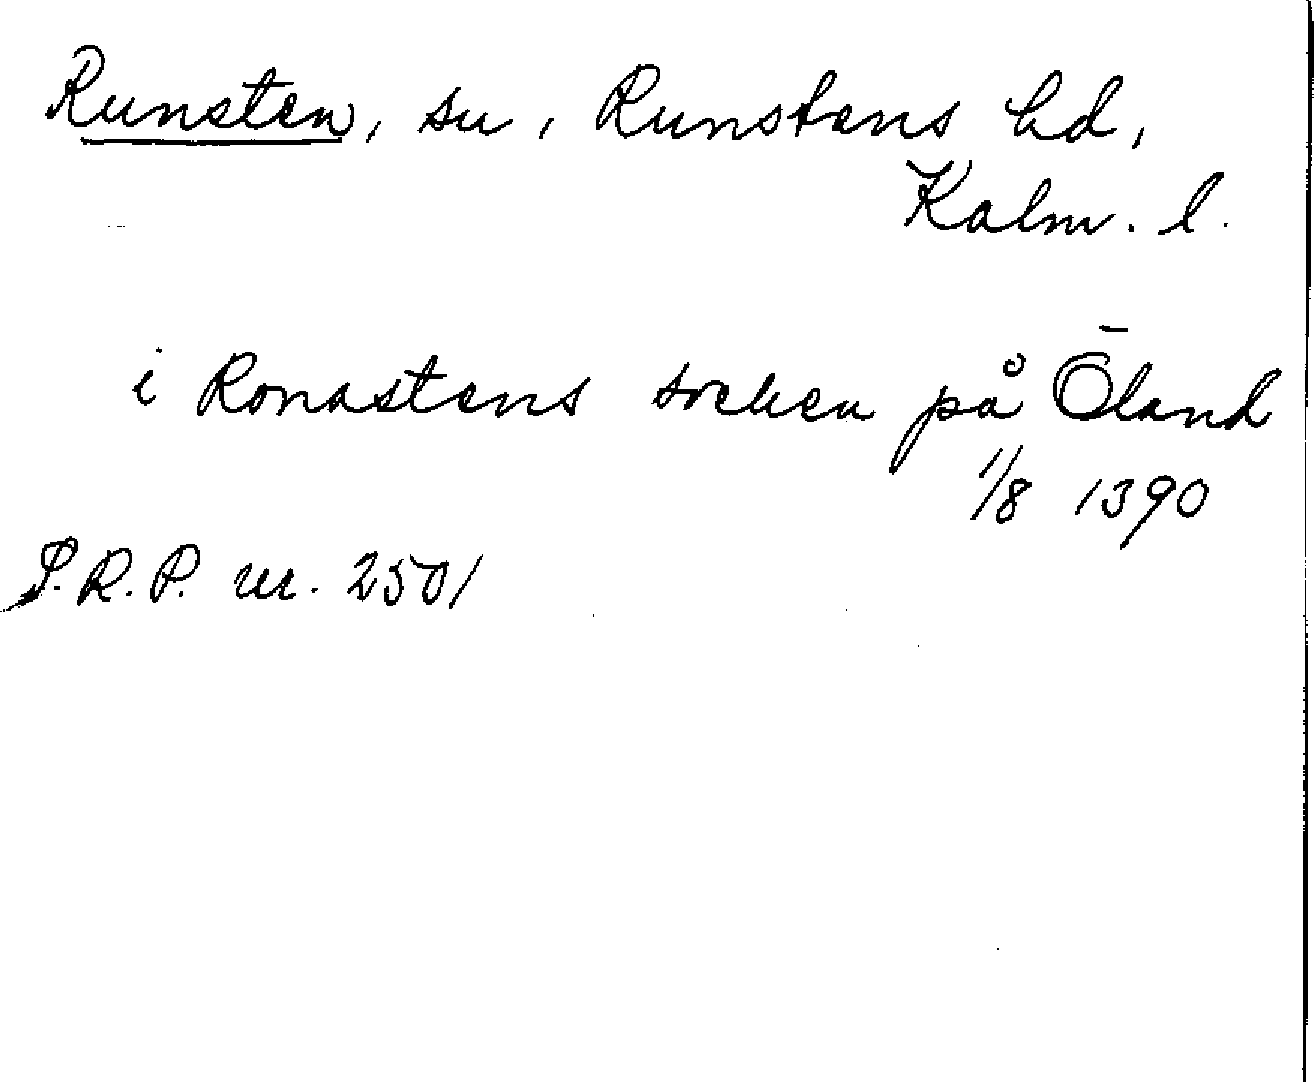 Runsten, sn, Runstens hd,
Kalm. l.
i Ronastens socken på Öland
1/8 1390
S.R.P. nr. 2501